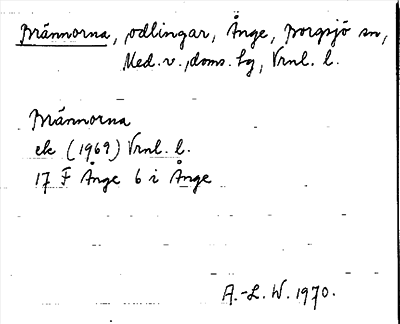 Brännorna, odlingar, Ånge, Borgsjö sn,
Med. v., doms. sg, Vrnl. l.
Brännorna
ek (1969) Vrnl. l.
17 F Ånge 6 i Ånge
A.-L. W. 1970.